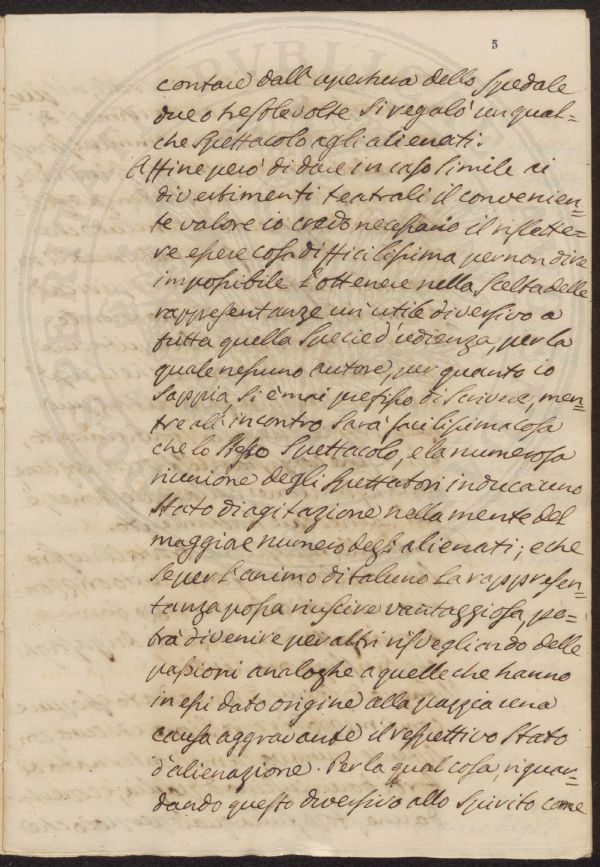 5
contare dall'apertura dello Spedale
due o tre sole volte si regalò un qual=
che spettacolo agli alienati.
Affine però di dare in caso simile ai
divertimenti teatrali il convenien=
te valore io credo necessario il riflette=
re essere cosa difficilissima, per non dire
impossibile l'ottenere nella scelta delle
rappresentanze un'utile diversivo a
tutta quella specie d'udienza, per la
quale nessuno autore, per quanto io
sappia, si è mai prefisso di scrivere, men=
tre all'incontro sarà facilissima cosa
che lo stesso spettacolo, e la numerosa
riunione degli spettatori induca uno
stato di agitazione nella mente del
maggiore numero degli alienati; e che
se per l'animo di taluno la rappresen=
tanza possa riuscire vantaggiosa, po=
trà divenire per altri risvegliando delle
passioni analoghe a quelle che hanno
in essi dato origine alla pazzia una
causa aggravante il respettivo stato
d'alienazione. Per la qual cosa, riguar=
dando questo diversivo allo spirito come